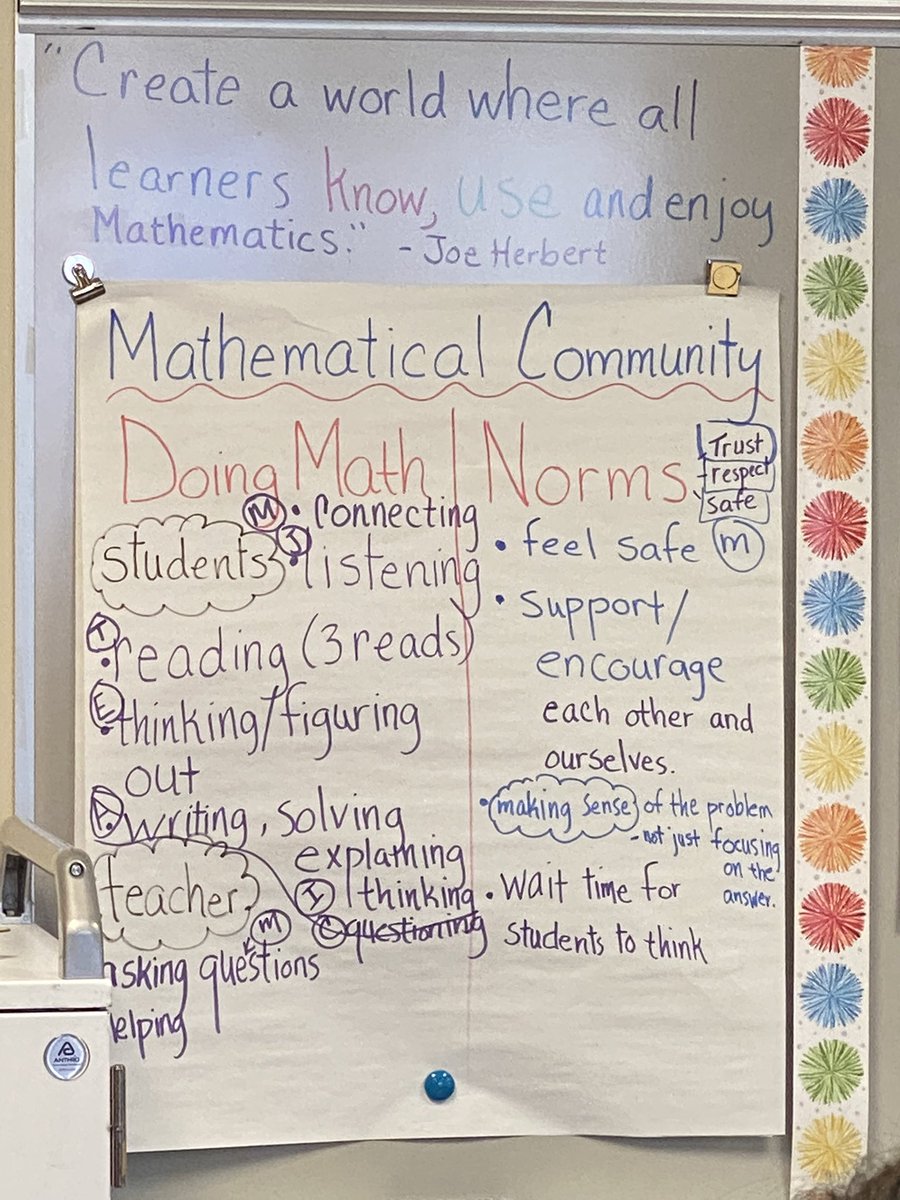 "Create a world where all
learners know, use and enjoy
Mathematics." - Joe Herbert
Mathematical Community
Doing Math
students
M • Connecting
J • listening
T • reading (3 reads)
E • thinking/figuring
out
writing, solving
explaining
I thinking
questioning
teacher
M
asking questions
helping
Norms
Trust
respect
safe
• feel safe M
• support/
encourage
each other and
ourselves.
• making sense of the problem
- not just focusing
on the
answer.
• wait time for
students to think
ANTHRO